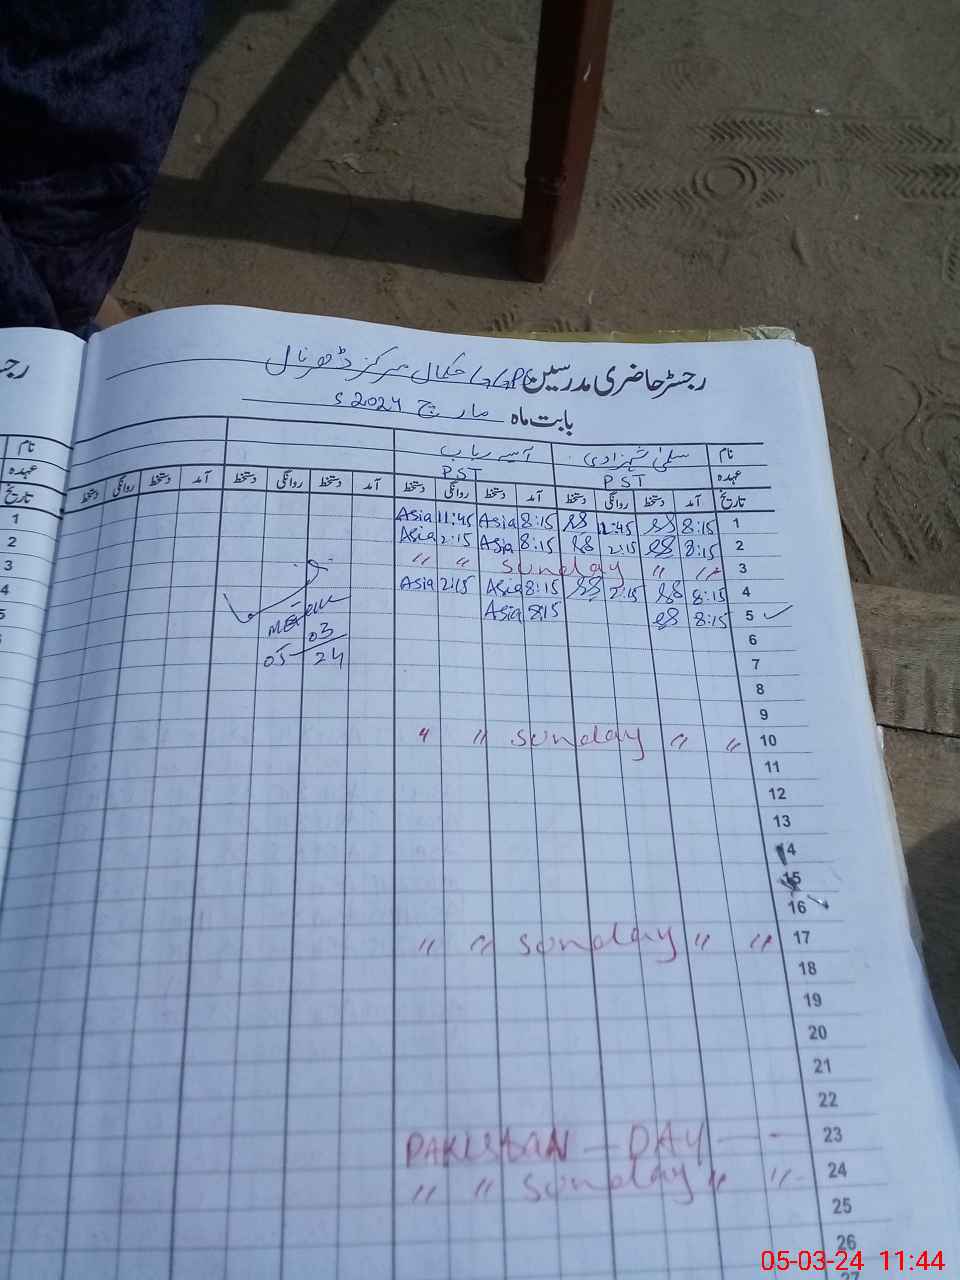 رجسٹر حاضری مدرسین GGPS حکال مرکز ڈھرنال
بابت ماہ مارچ 2024 s
نام سلمیٰ شہزادی آسیہ رباب
عہدہ PST PST
تاریخ آمد دستخط روانگی دستخط آمد دستخط روانگی دستخط آمد دستخط روانگی دستخط آمد دستخط روانگی دستخط
1 8:15 SS 11:45 SS 8:15 Asia 11:45 Asia
2 8:15 SS 2:15 SS 8:15 Asia 2:15 Asia
3 〃 〃 sunday 〃 〃
4 8:15 SS 2:15 SS 8:15 Asia 2:15 Asia
5 8:15 SS 8:15 Asia
03
05 24
6
7
8
9
10 〃 〃 sunday 〃 〃
11
12
13
14
15
16
17 〃 〃 sunday 〃 〃
18
19
20
21
22
23 PAKISTAN — DAY — -
24 〃 〃 sunday 〃 〃
25
26
27
رجـ
نام
عہدہ
تاریخ
1
2
3
4
5
05-03-24 11:44